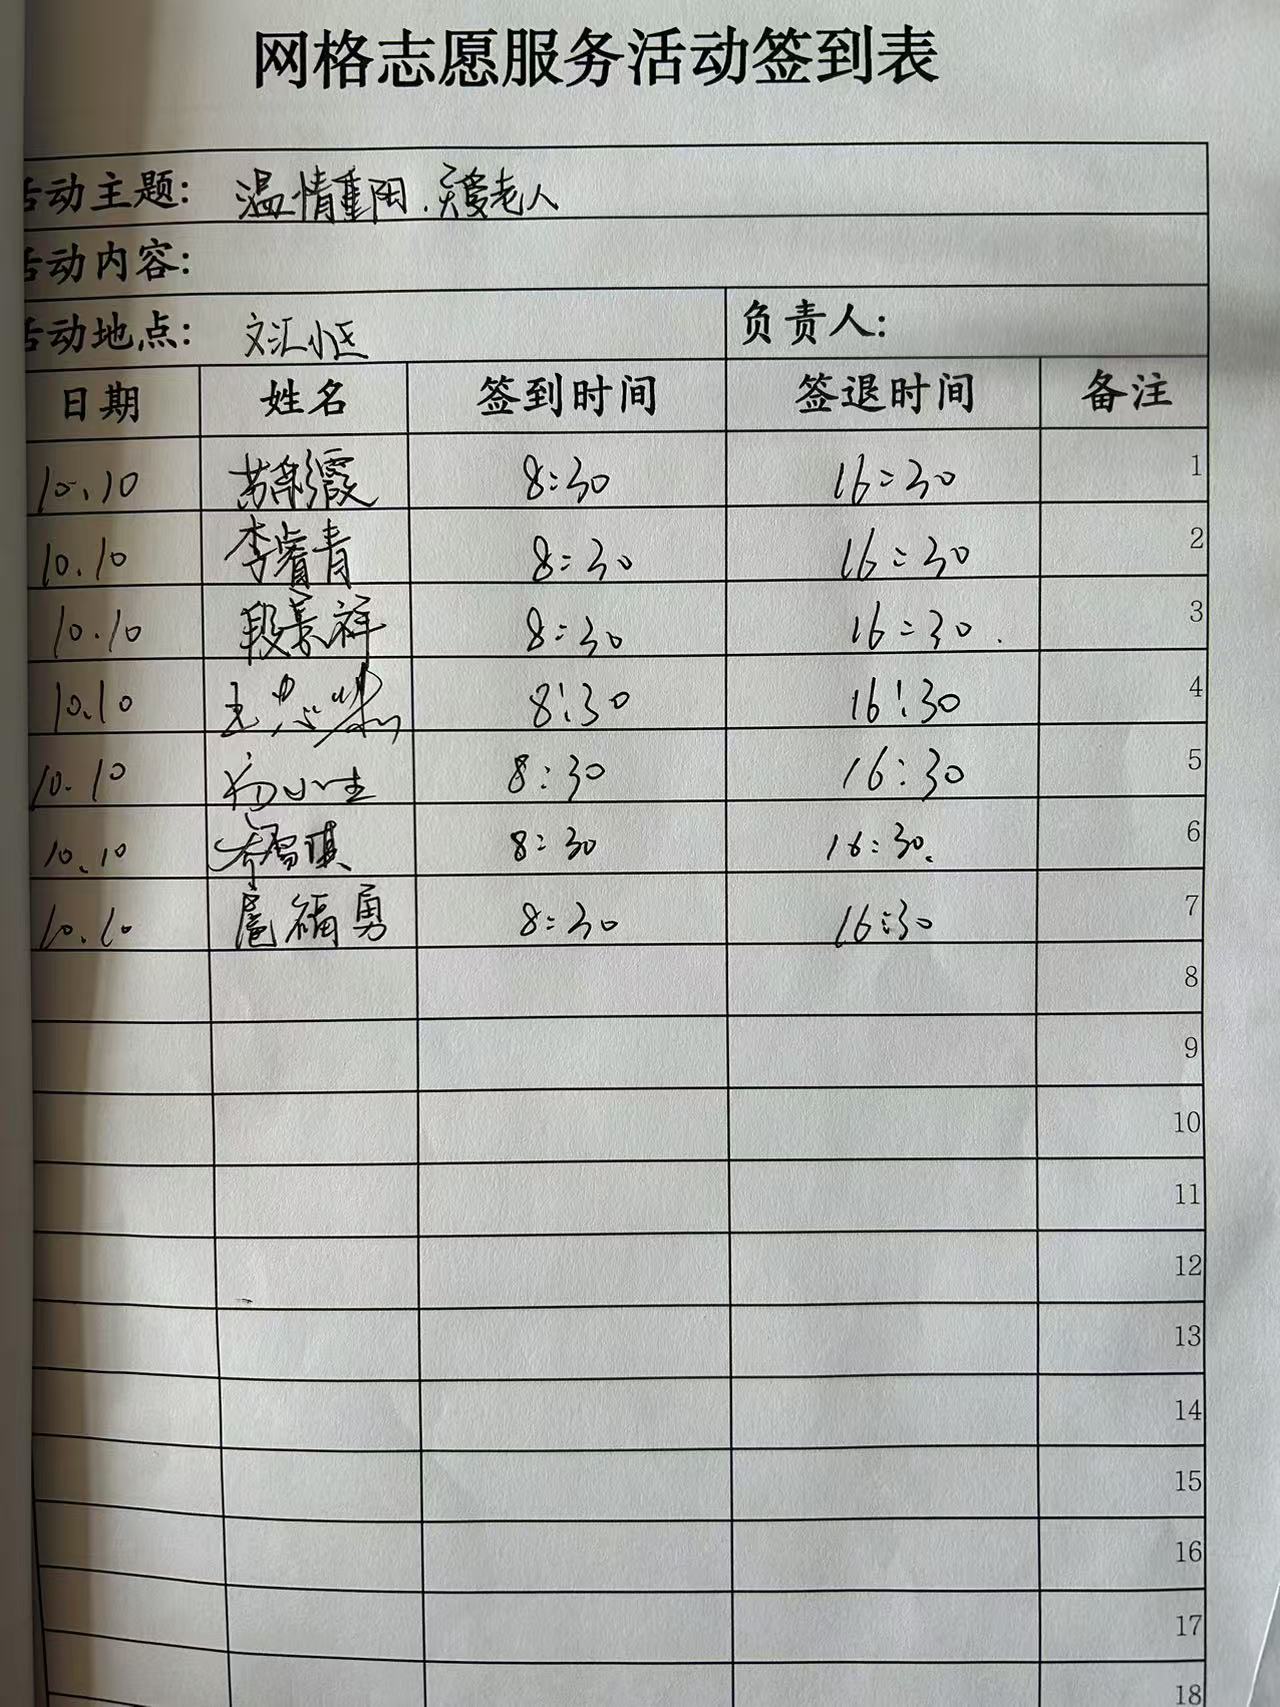 网格志愿服务活动签到表
活动主题: 温情重阳.关爱老人
活动内容:
活动地点: 文汇小区 负责人:
日期 姓名 签到时间 签退时间 备注
10.10 苏彩霞 8:30 16:30 1
10.10 李睿青 8:30 16:30 2
10.10 段景祥 8:30 16:30. 3
10.10 王忠 8:30 16:30 4
10.10 杨小生 8:30 16:30 5
10.10 琪 8:30 16:30. 6
10.10 扈福勇 8:30 16:30 7
8
9
10
11
12
13
14
15
16
17
18